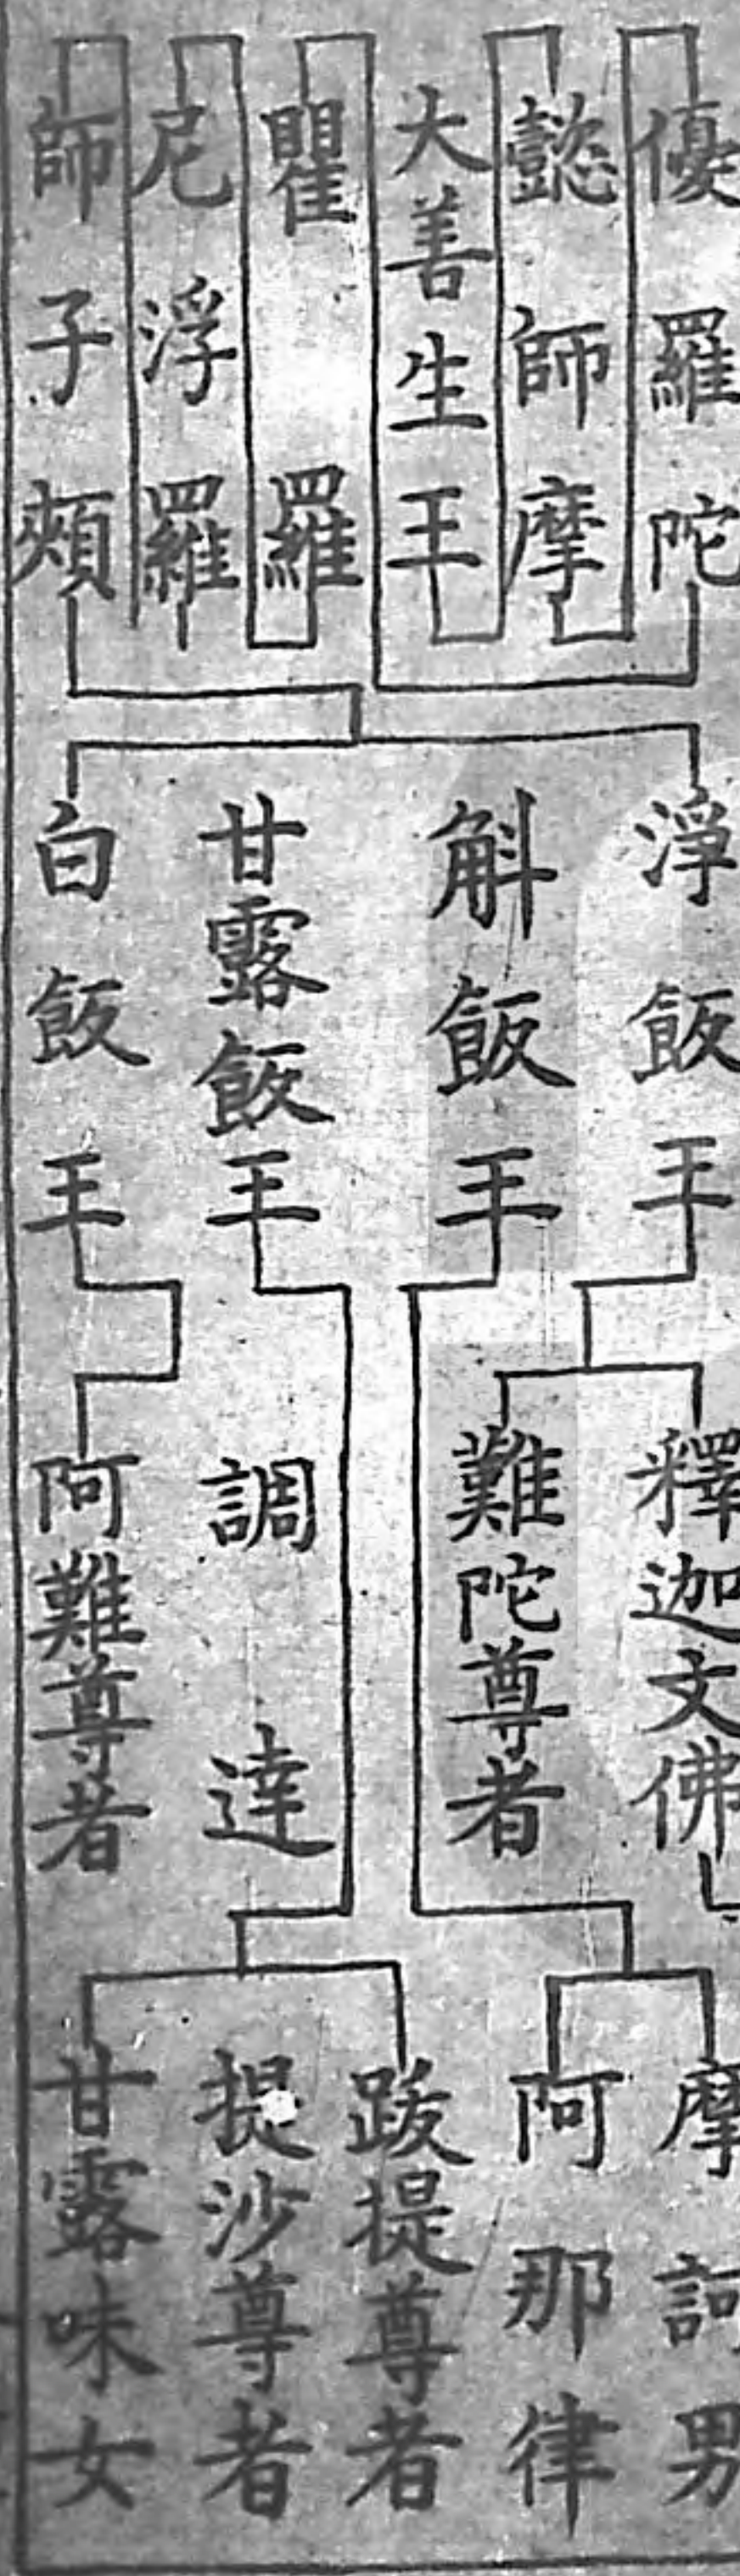 優羅陀
懿師摩
大善生王
瞿羅
尼浮羅
師子頰
淨飯王
斛飯王
甘露飯王
白飯王
釋迦文佛
難陀尊者
調達
阿難尊者
摩訶男
阿那律
跋提尊者
提沙尊者
甘露味女